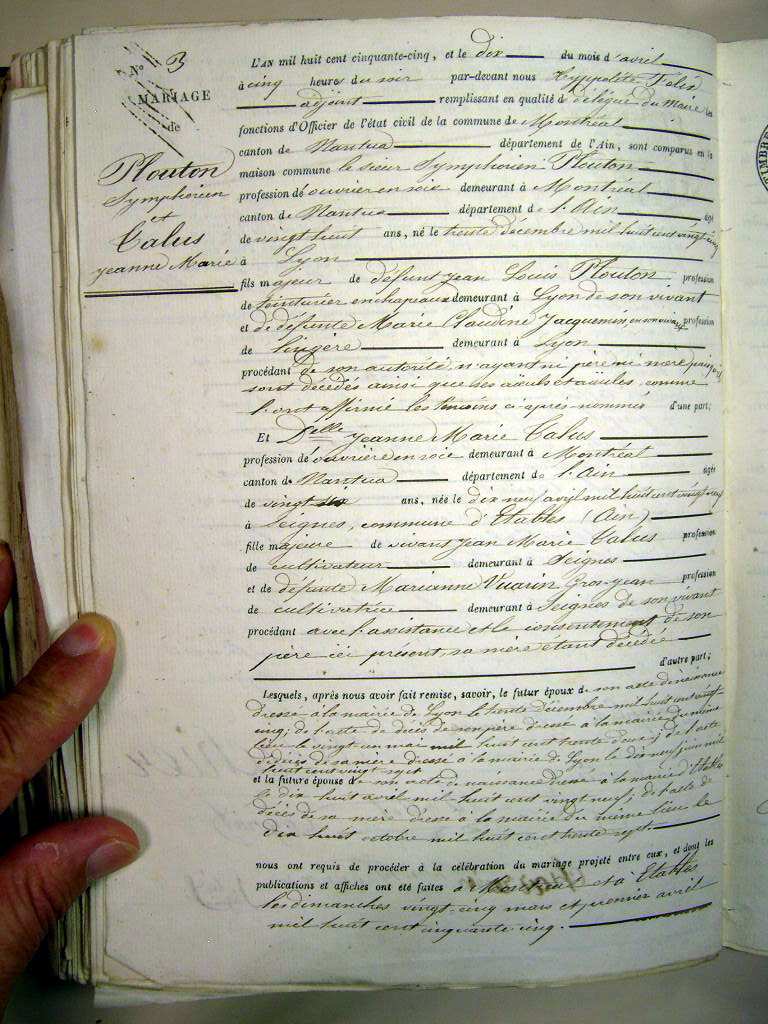 N° 3
MARIAGE
de
Plouton
Symphorien
et
Calus
Jeanne Marie
L'AN mil huit cent cinquante-cinq, et le dix du mois d'avril
à cinq heures du soir par-devant nous Hyppolite
adjoint remplissant en qualité de délégué du Maire les
fonctions d'Officier de l'état civil de la commune de Montréal
canton de Nantua département de l'Ain, sont comparus en la
maison commune le sieur Symphorien Plouton
profession de ouvrier en soie demeurant à Montréal
canton de Nantua département de l'Ain âgé
de vingt huit ans, né le trente décembre mil huit cent vingt cinq
à Lyon
fils majeur de défunt Jean Louis Plouton profession
de teinturier en chapeaux demeurant à Lyon de son vivant
et de défunte Marie Claudine Jacquemin, en son vivant profession
de lingère demeurant à Lyon
procédant de son autorité, n'ayant ni père ni mère puisqu'ils
sont décédés ainsi que ses aïeuls et aïeules comme
l'ont affirmé les témoins ci après nommés d'une part;
Et Delle Jeanne Marie Calus
profession de ouvrière en soie demeurant à Montréal
canton de Nantua département de l'Ain âgée
de vingt six ans, née le dix neuf avril mil huit cent vingt neuf
à Seignes, commune d'Etables (Ain)
fille majeure de vivant Jean Marie Calus profession
de cultivateur demeurant à Seignes
et de défunte Marianne Vuarin gros-jean profession
de cultivatrice demeurant à Seignes de son vivant
procédant avec l'assistance et le consentement de son
père ici présent, sa mère étant décédée
d'autre part;
Lesquels, après nous avoir fait remise, savoir, le futur époux de son acte de naissance
dressé à la mairie de Lyon le trente décembre mil huit cent vingt
cinq; de l'acte de décès de son père dressé à la mairie du même
lieu le vingt un mai mil huit cent trente ; de l'acte
de décès de sa mère dressé à la mairie de Lyon le dix neuf juin mil
huit cent vingt sept
et la future épouse de son acte de naissance dressé à la mairie d'Etables
le dix huit avril mil huit cent vingt neuf; de l'acte de
décès de sa mère dressé à la mairie du même lieu le
dix huit octobre mil huit cent trente sept.
nous ont requis de procéder à la célébration du mariage projeté entre eux, et dont les
publications et affiches ont été faites à Montréal et à Etables
les dimanches vingt-cinq mars et premier avril
mil huit cent cinquante cinq.
TIMBRE